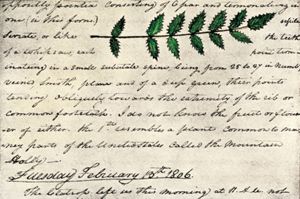 oppositly pointed consisting of 6 par and terminating in
one (in this form)
Serate, or like
of a whipsaw, each
inating in a small subulate spine, being from 25 to 27 in numb,
veined, smooth, plane and of a deep green, their points
tending obliquely towards the extremity of the rib or
common footstalk. I do not know the fruit or flower
of either. the 1st resembles a plant common to ma-
ny parts of the United States called the Mountain
Holly.
Tuesday February 13th 1806.